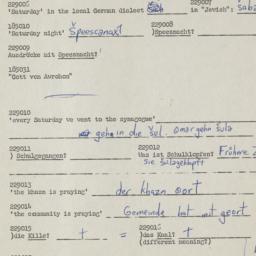 229006 229007
'Saturday' in the local German dialect in "Jewish":
185010 229008
'Saturday night' Speesenaxt )Speesnacht?
229009
Ausdrücke mit Speesnacht?
185031
"Gott von Avrohom"
229010
'every Saturday we went to the synagogue'
geh in die Šul. omər gehn Šulə
229011 229012
) Schulgangen? Was ist Schulklopfen? Frühere
Sie Šuləgeklopft
229013
'the khazn is praying' der khazn oort
229014
'the community is praying' Gemeinde hat mit geort
229015 229016
)die Kille? + = )das Kaal? +
(different meaning?)